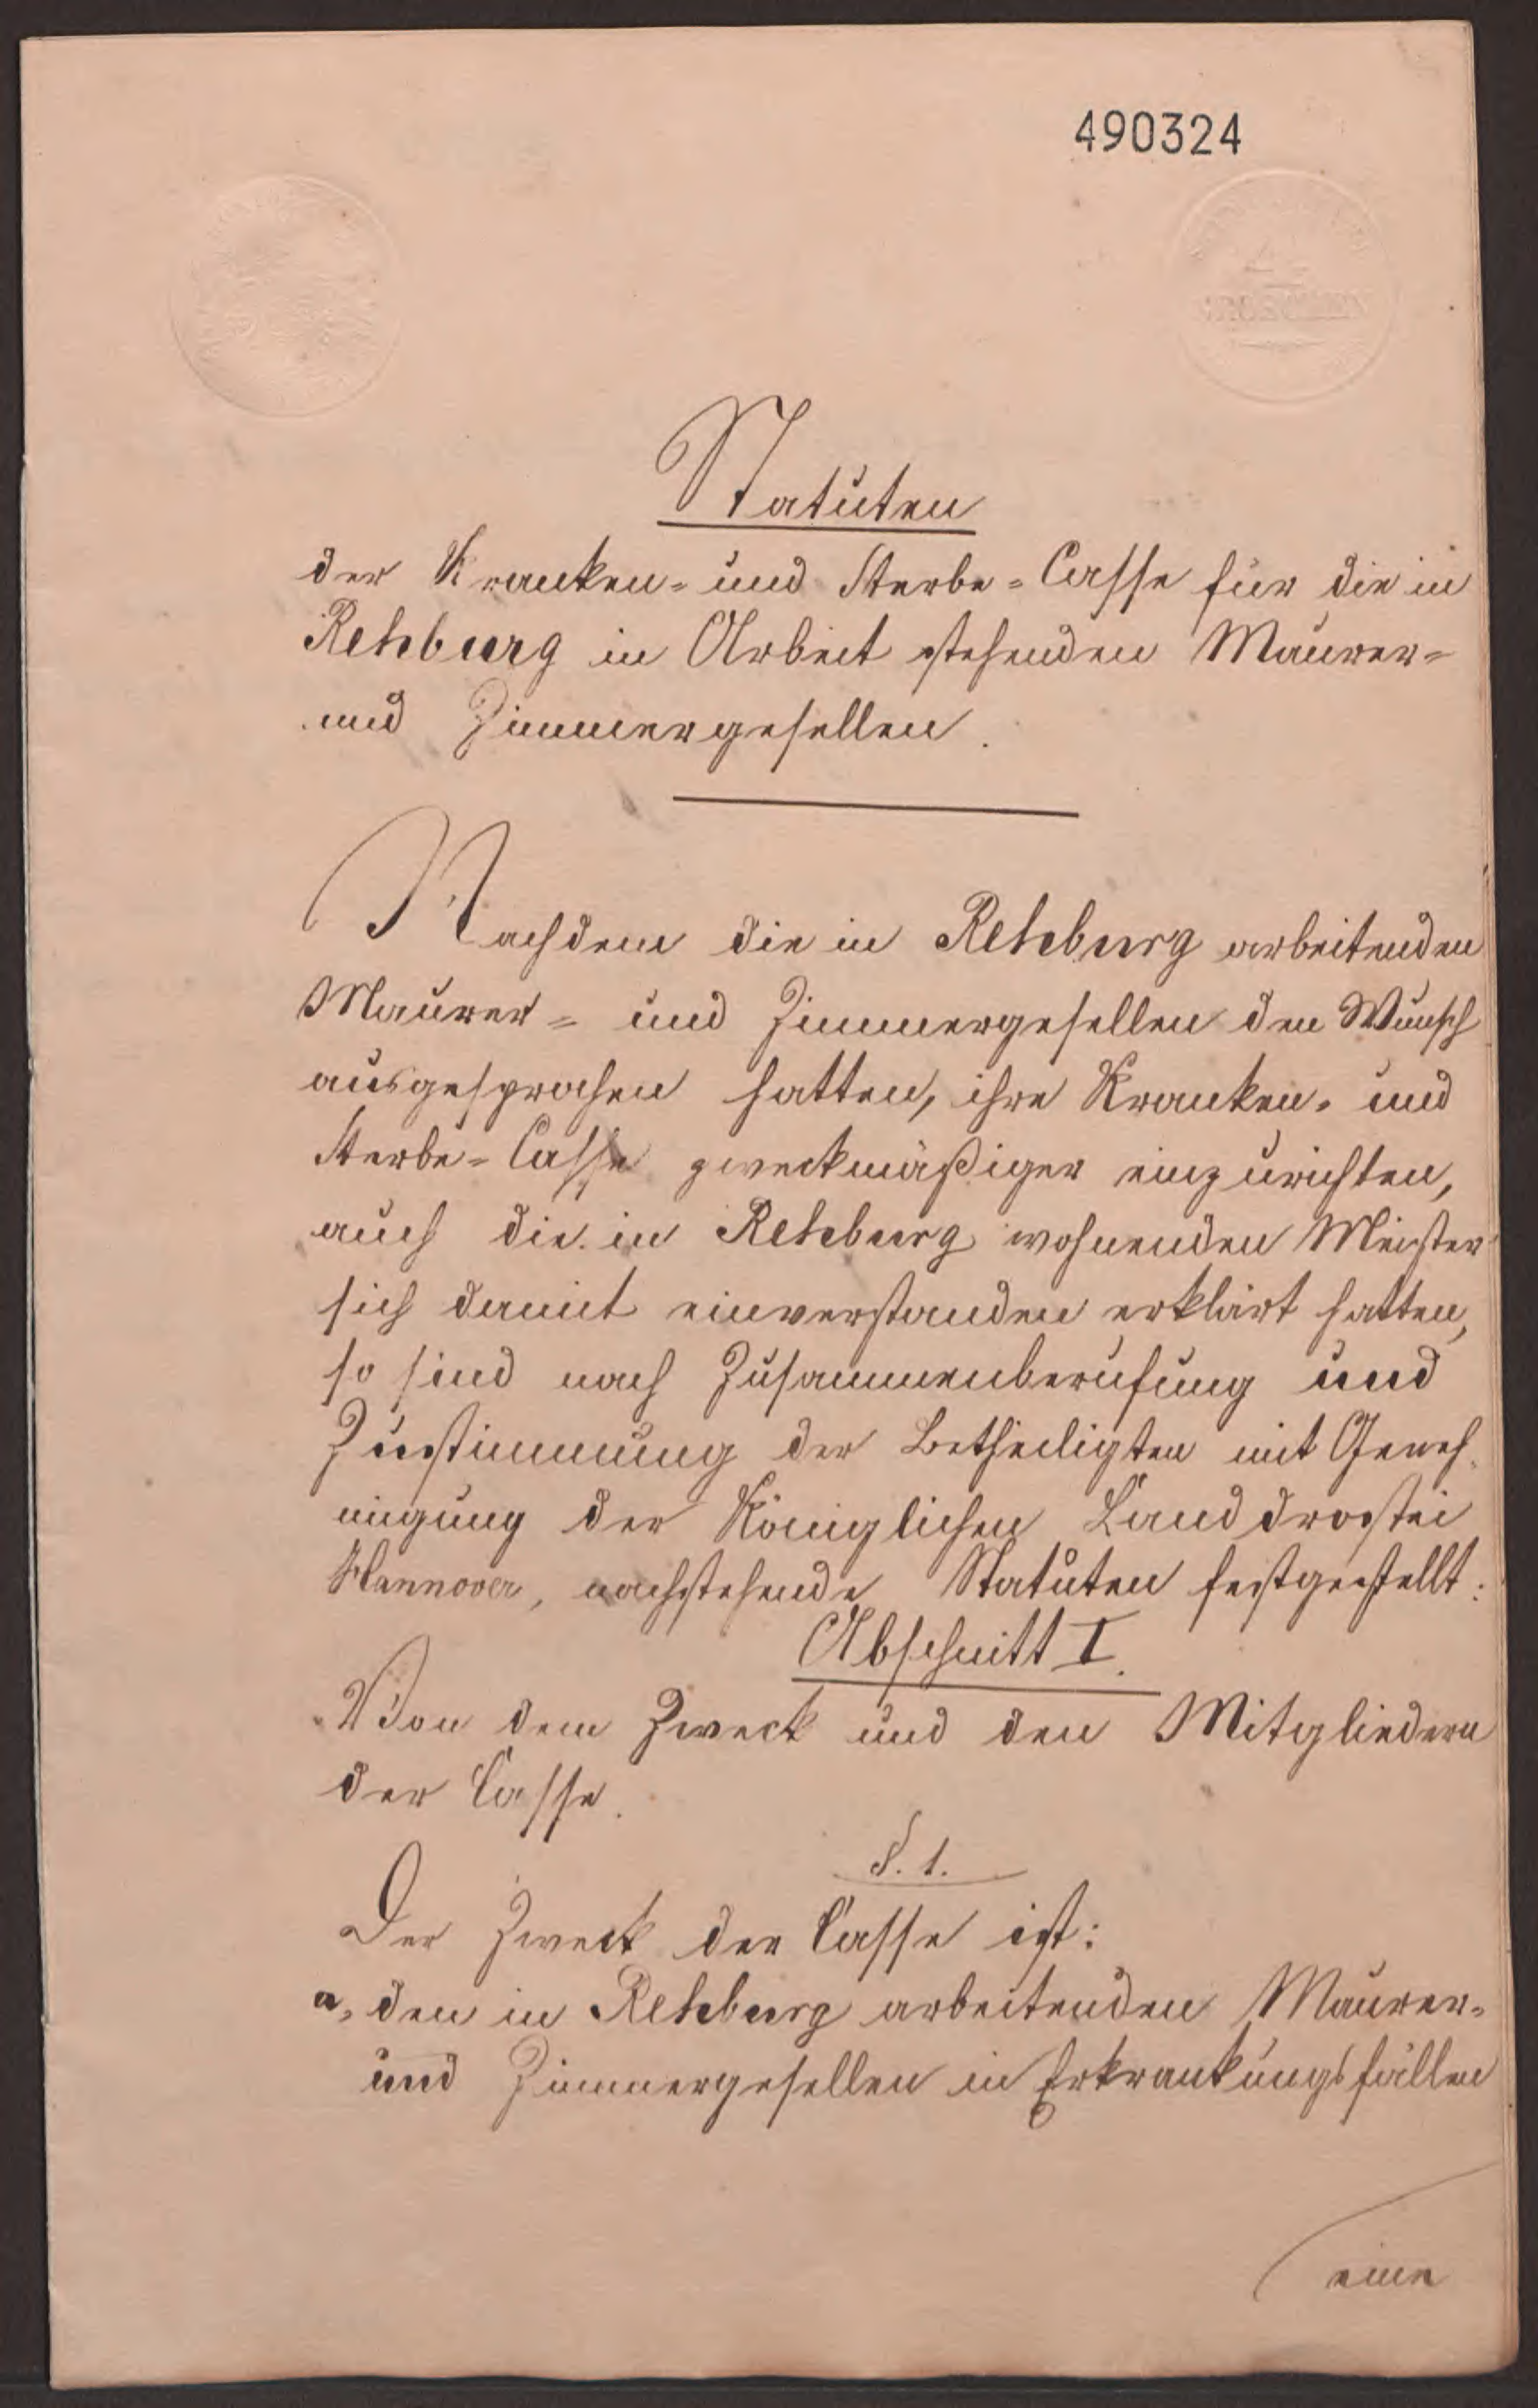 490324
Statuten
der Kranken- und Sterbe-Casse für die in
Rehburg in Arbeit stehenden Maurer-
und Zimmergesellen.
Nachdem die in Rehburg arbeitenden
Maurer- und Zimmergesellen den Wunsch
ausgesprochen hatten, ihre Kranken- und
Sterbe-Casse zweckmäßiger einzurichten,
auch die in Rehburg wohnenden Meister
sich damit einverstanden erklärt hatten,
so sind nach Zusammenberufung und
Zustimmung der Betheiligten mit Geneh-
migung der Königlichen Landdrostei
Hannover, nachstehende Statuten festgestellt:
Abschnitt I.
Von dem Zweck und den Mitgliedern
der Casse.
§. 1.
Der Zweck der Casse ist:
a, den in Rehburg arbeitenden Maurer-
und Zimmergesellen in Erkrankungsfällen
eine